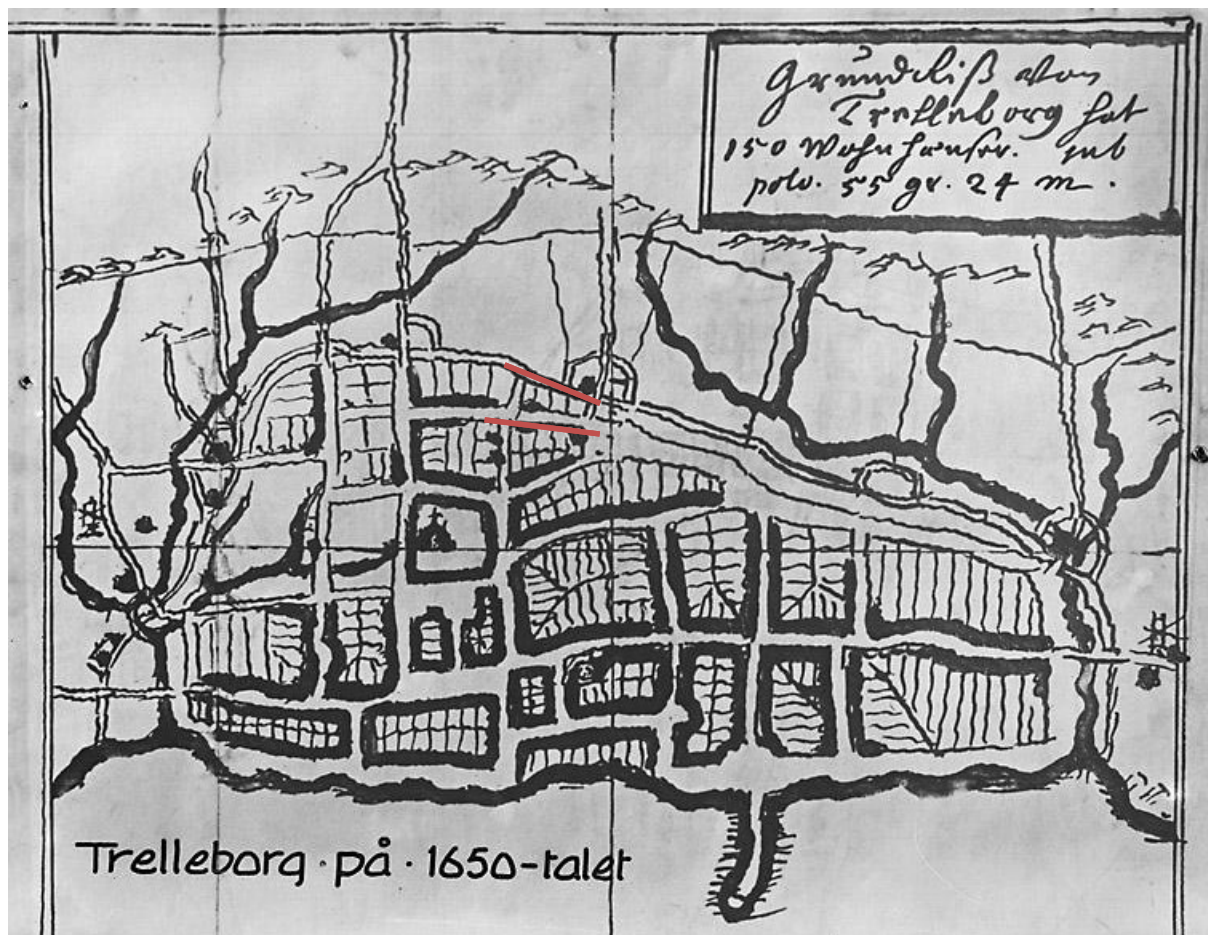 Grundriß Von
Trelleborg hat
150 Wohnhæuser. sub
polo. 55 gr. 24 m.
Trelleborg · på · 1650-talet